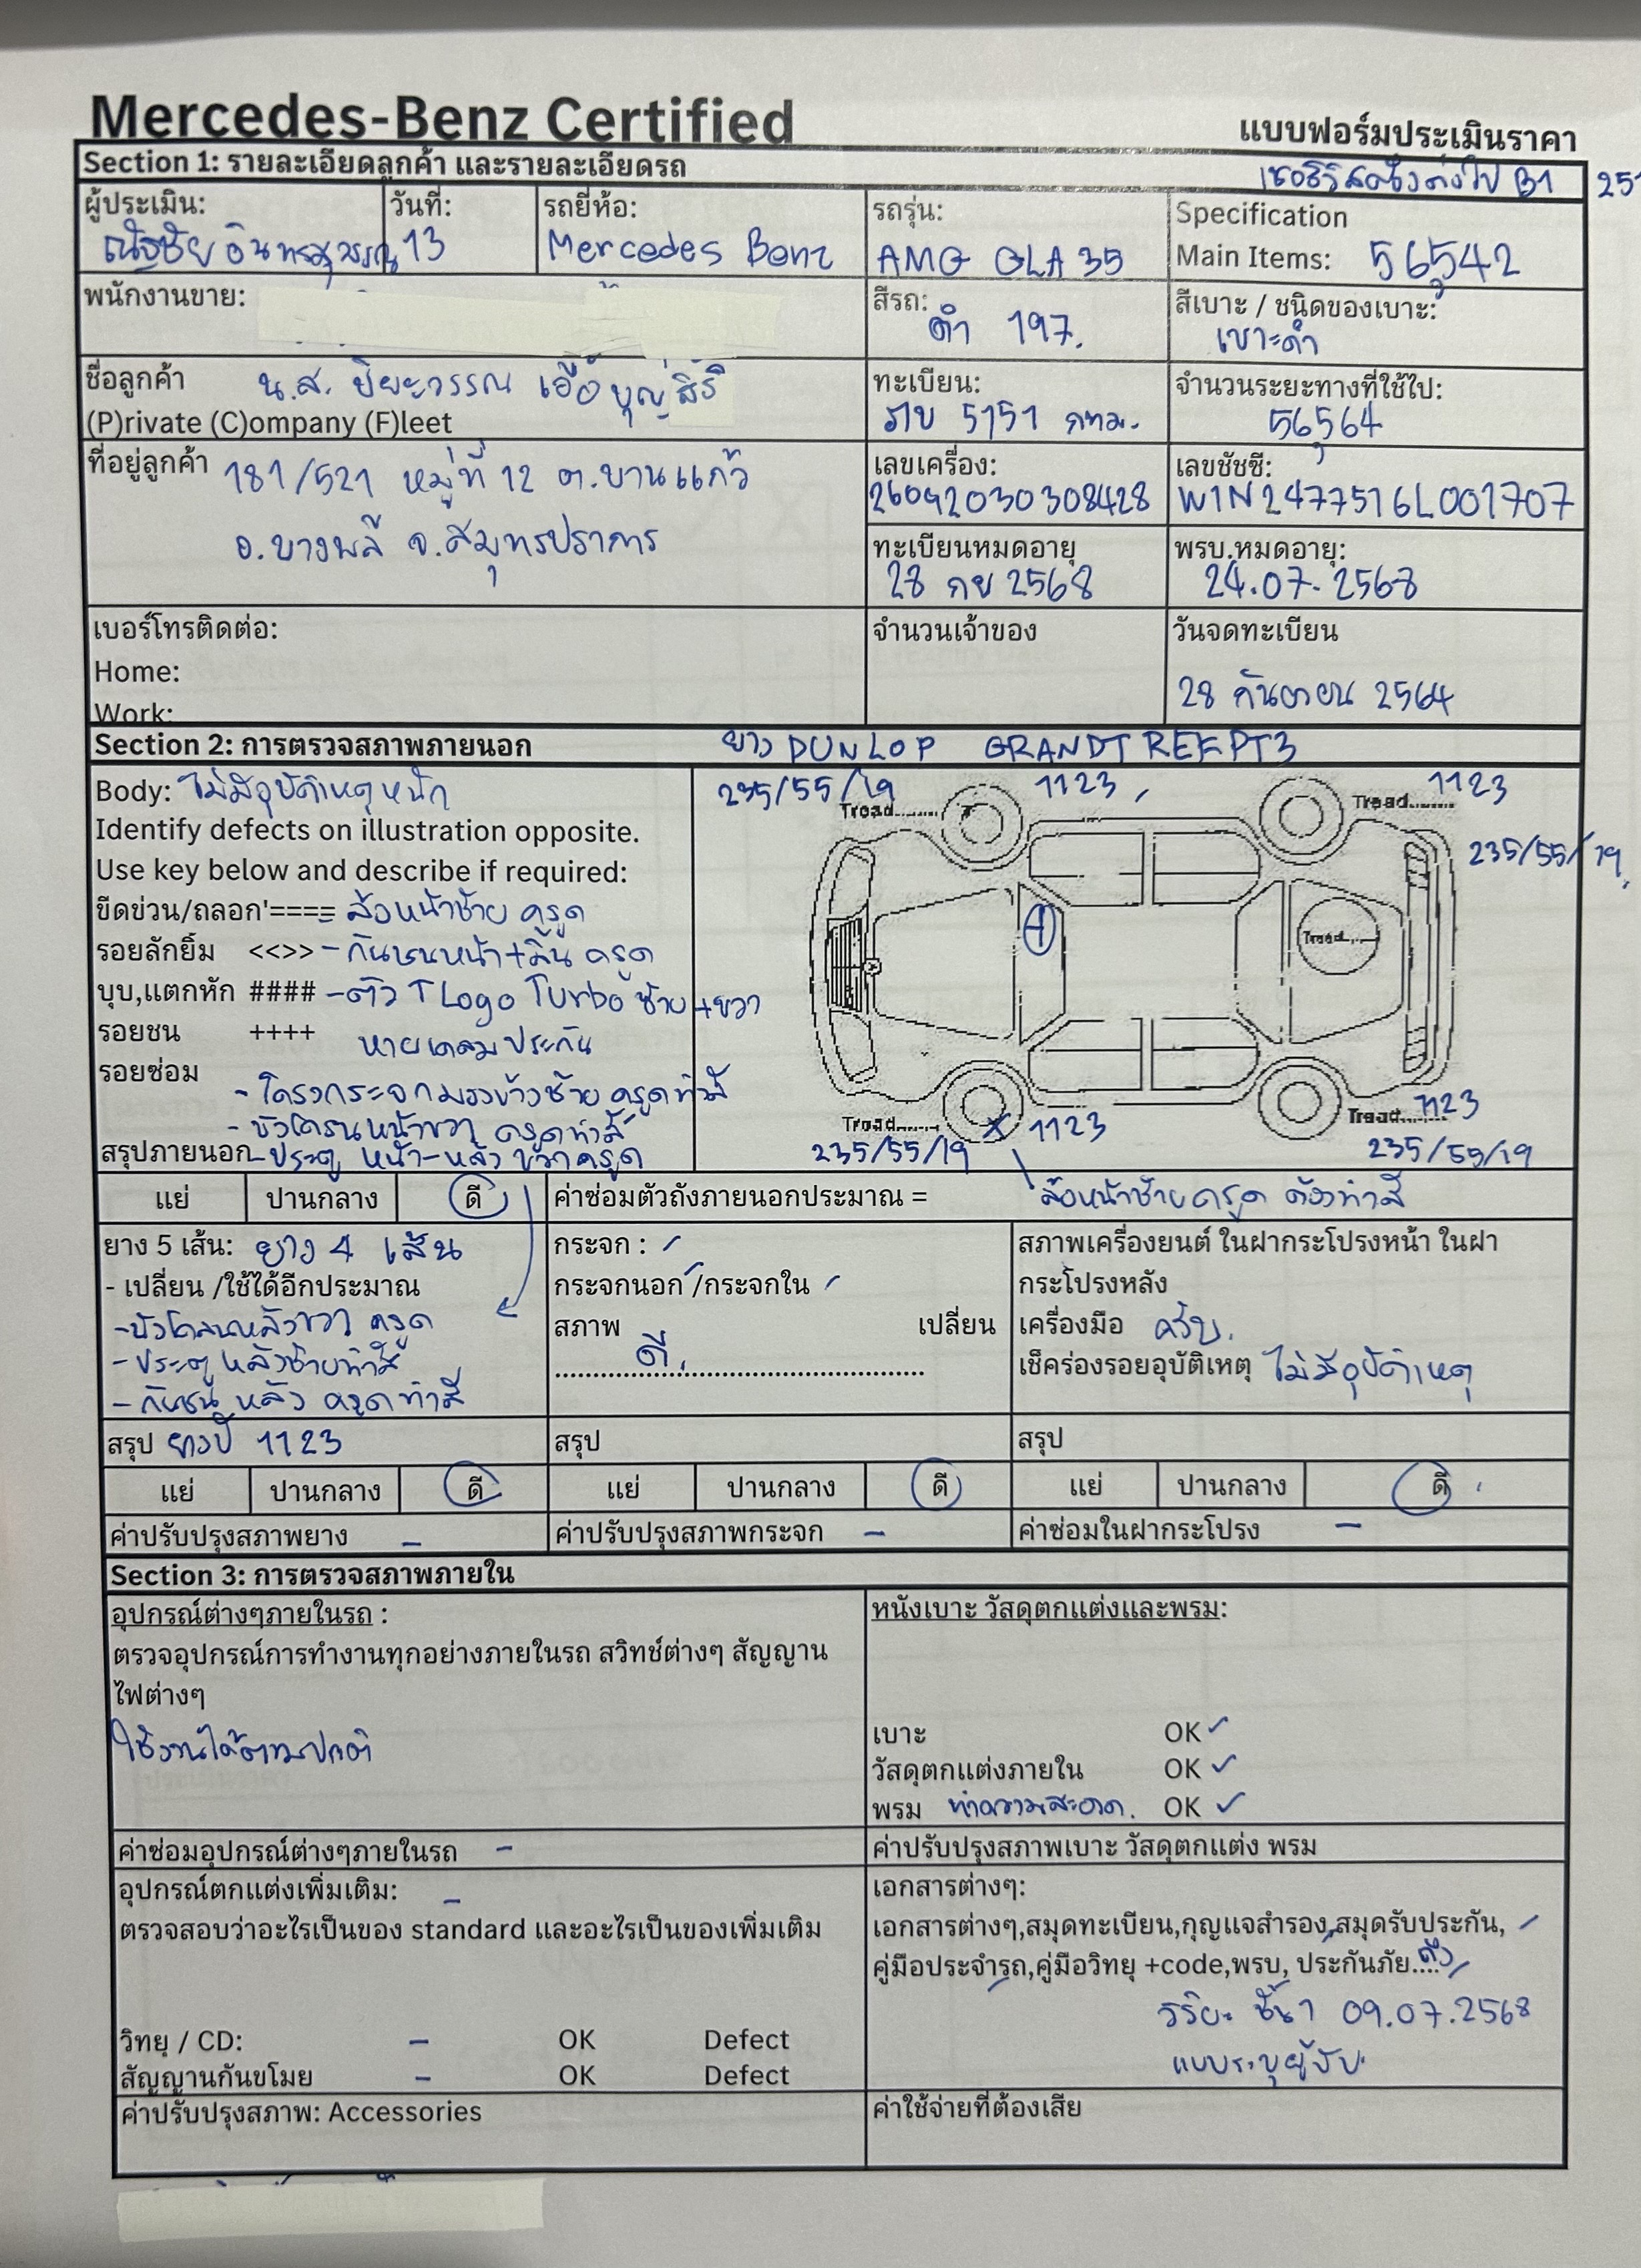 Mercedes-Benz Certified
แบบฟอร์มประเมินราคา
Section 1: รายละเอียดลูกค้า และรายละเอียดรถ
B1
ผู้ประเมิน: ณัฐชัย อินทรสุวรรณ
วันที่: 13
รถยี่ห้อ: Mercedes Benz
รถรุ่น: AMG GLA 35
Specification
Main Items: 56,542
พนักงานขาย:
สีรถ: ดำ 197.
สีเบาะ / ชนิดของเบาะ: เบาะดำ
ชื่อลูกค้า น.ส. ปิยะวรรณ เอื้อบุญสิริ
(P)rivate (C)ompany (F)leet
ทะเบียน: 5151 กทม.
จำนวนระยะทางที่ใช้ไป: 56,564
ที่อยู่ลูกค้า 181/521 หมู่ที่ 12 ต.บางแก้ว
อ.บางพลี จ.สมุทรปราการ
เลขเครื่อง: 26092030308428
เลขชัชซี: W1N2477516L001707
ทะเบียนหมดอายุ 28 กย 2568
พรบ.หมดอายุ: 24.07.2568
เบอร์โทรติดต่อ:
Home:
Work:
จำนวนเจ้าของ
วันจดทะเบียน 28 กันยายน 2564
Section 2: การตรวจสภาพภายนอก
ยาง DUNLOP
Body: ไม่มีอุบัติเหตุหนัก
Identify defects on illustration opposite.
Use key below and describe if required:
ขีดข่วน/ถลอก'==== - ล้อหน้าซ้าย ครูด
รอยลักยิ้ม <<>> - กันชนหน้า+ลิ้น ครูด
บุบ,แตกหัก #### - ตัว T Logo Turbo ซ้าย+ขวา
รอยชน ++++ หายเคลมประกัน
รอยซ่อม
- โครงกระจกมองข้างซ้าย ครูดทำสี
- บังโคลนหน้าขวา ครูดทำสี
สรุปภายนอก - ประตู หน้า-หลัง ขวาครูด
235/55/19 Tread........ 1123
Tread........ 1123
235/55/19
Tread.....
Tread....... 1123
235/55/19
Tread........ 1123
235/55/19
แย่ ปานกลาง ดี
ค่าซ่อมตัวถังภายนอกประมาณ = ล้อหน้าซ้ายครูด ต้องทำสี
ยาง 5 เส้น: ยาง 4 เส้น
- เปลี่ยน /ใช้ได้อีกประมาณ
- บังโคลนหลังขวา ครูด
- ประตู หลังซ้ายทำสี
- กันชน หลัง ครูดทำสี
กระจก :
กระจกนอก /กระจกใน
สภาพ ดี. เปลี่ยน
สภาพเครื่องยนต์ ในฝากระโปรงหน้า ในฝา
กระโปรงหลัง
เครื่องมือ ครบ.
เช็คร่องรอยอุบัติเหตุ ไม่มีอุบัติเหตุ
สรุป ยางปี 1123
สรุป
สรุป
แย่ ปานกลาง ดี
แย่ ปานกลาง ดี
แย่ ปานกลาง ดี
ค่าปรับปรุงสภาพยาง -
ค่าปรับปรุงสภาพกระจก -
ค่าซ่อมในฝากระโปรง -
Section 3: การตรวจสภาพภายใน
อุปกรณ์ต่างๆภายในรถ :
ตรวจอุปกรณ์การทำงานทุกอย่างภายในรถ สวิทช์ต่างๆ สัญญาน
ไฟต่างๆ
ใช้งานได้ตามปกติ
หนังเบาะ วัสดุตกแต่งและพรม:
เบาะ OK ✓
วัสดุตกแต่งภายใน OK ✓
พรม ทำความสะอาด. OK ✓
ค่าซ่อมอุปกรณ์ต่างๆภายในรถ -
ค่าปรับปรุงสภาพเบาะ วัสดุตกแต่ง พรม
อุปกรณ์ตกแต่งเพิ่มเติม: -
ตรวจสอบว่าอะไรเป็นของ standard และอะไรเป็นของเพิ่มเติม
เอกสารต่างๆ:
เอกสารต่างๆ,สมุดทะเบียน,กุญแจสำรอง,สมุดรับประกัน,
คู่มือประจำรถ,คู่มือวิทยุ +code,พรบ, ประกันภัย....
วิริยะ ชั้น 1 09.07.2568
แบบระบุผู้ขับ
วิทยุ / CD: - OK Defect
สัญญานกันขโมย - OK Defect
ค่าปรับปรุงสภาพ: Accessories
ค่าใช้จ่ายที่ต้องเสีย